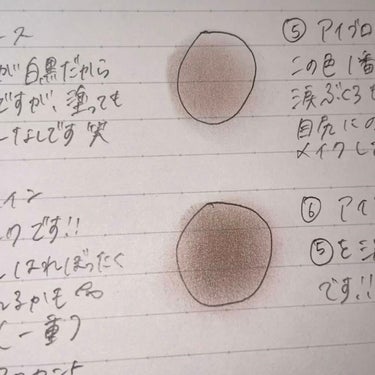 ース
が白黒だから
ですが、塗っても
しなしです 笑
⑤ アイブロ
この色1番
涙ぶくろも
目尻にの
メイクし
イン
クです!!
しはれぼったく
るかも
(一重)
⑥ アイ
⑤を
です!!